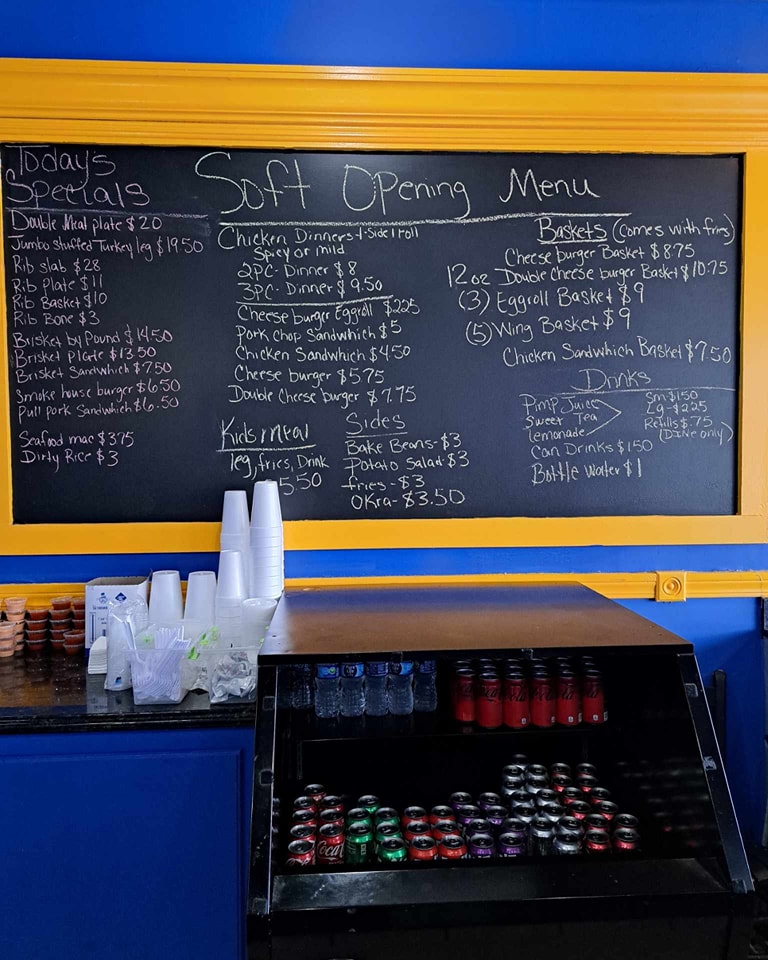 Today's
Specials
Double Meat plate $20
Jumbo stuffed Turkey leg $19.50
Rib slab $28
Rib Plate $11
Rib Basket $10
Rib Bone $3
Brisket by Pound $14.50
Brisket plate $13.50
Brisket Sandwhich $7.50
Smoke house burger $6.50
Pull pork Sandwhich $6.50
Seafood mac $3.75
Dirty Rice $3
Soft Opening Menu
Chicken Dinners-1-Side 1 roll
Spicy or mild
2PC- Dinner $8
3PC- Dinner $9.50
Cheese burger Eggroll $2.25
Pork Chop Sandwhich $5
Chicken Sandwhich $4.50
Cheese burger $5.75
Double Cheese burger $7.75
Kids Meal
leg, fries, Drink
5.50
Sides
Bake Beans-$3
Potato Salad-$3
fries-$3
OKra-$3.50
Baskets (comes with fries)
Cheese burger Basket $8.75
12oz Double Cheese burger Basket $10.75
(3) Eggroll Basket $9
(5) Wing Basket $9
Chicken Sandwhich Basket $7.50
Drinks
Pimp Juice
Sweet Tea
lemonade
Sm-$1.50
Lg-$2.25
Refills $.75
(DINE only)
Can Drinks $1.50
Bottle Water $1